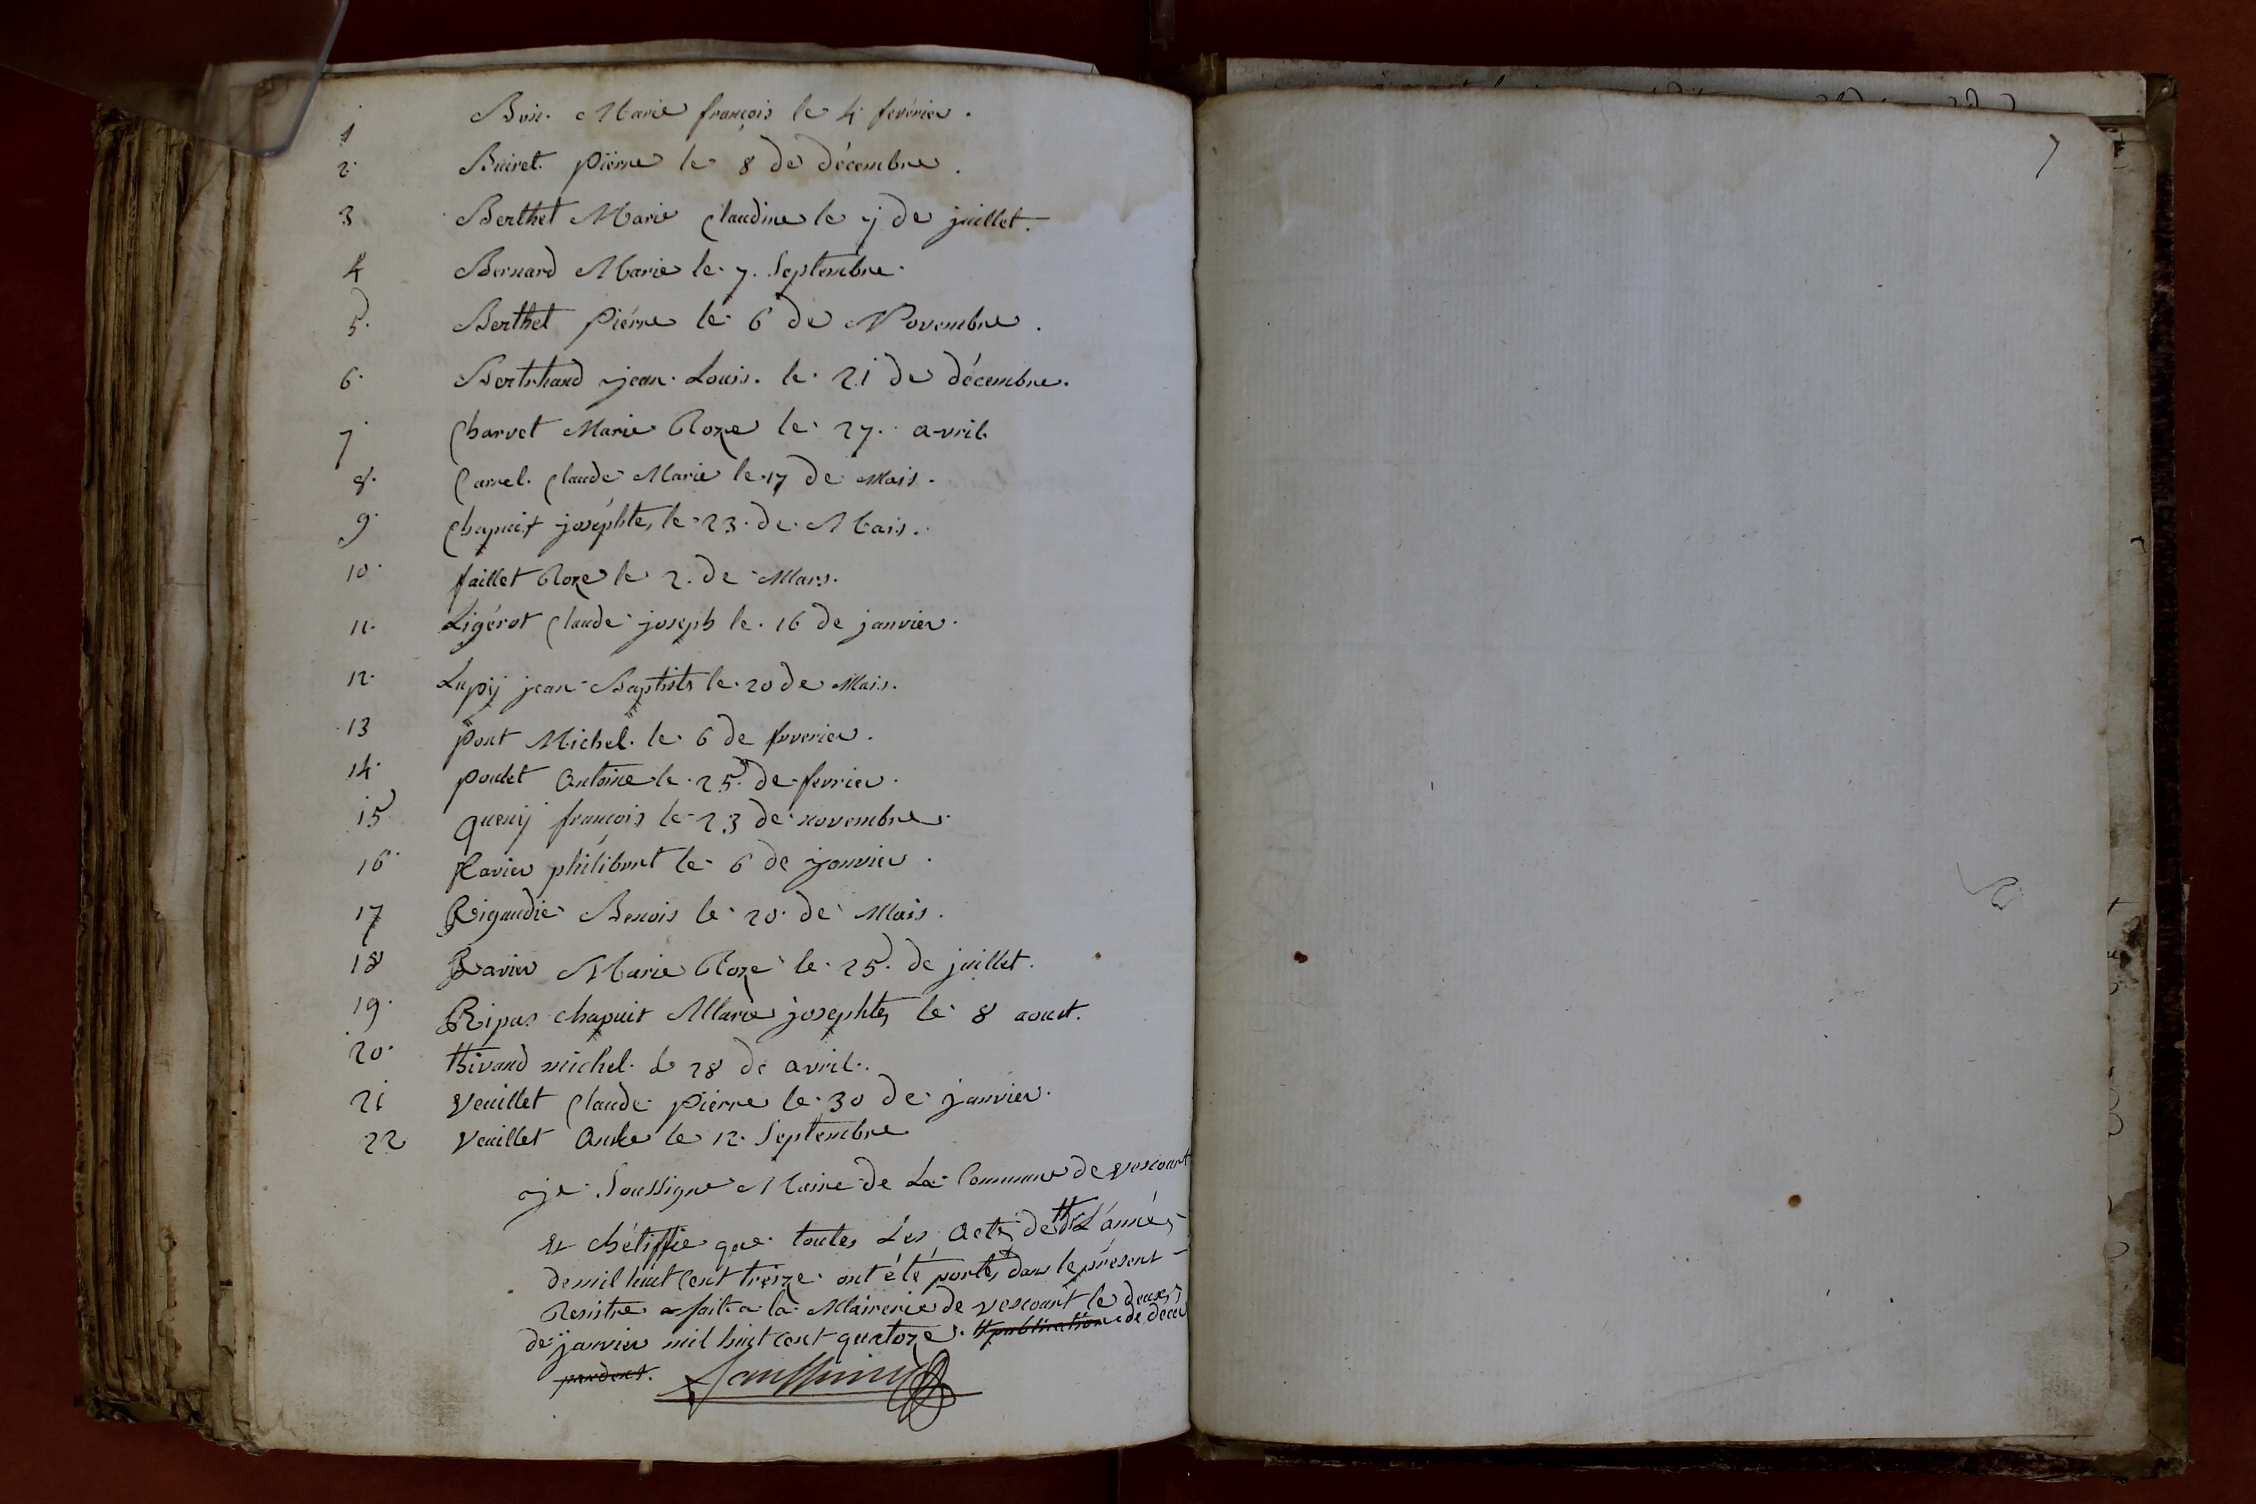 1 Marie françois le 4 feverier.
2. Buiret. pïerre le 8 de décembre.
3 Berthet Marie Claudine le j de juillet.
4 Bernard Marie le 7. Septembre.
5. Berthet Piérre le 6 de Novembre.
6. Bertrhand jean Louis. le 21 de décembre.
7. Charvet Marie Roze le 27. avril
8. Carrel. Claude Marie le 17 de Mais.
9. Chapuis joséphte, le 23. de Mais.
10. faillet Roze le 2. de Mars.
11. Ligérot Claude joseph le. 16 de janvier.
12. Lupÿ jean Baptiste le 20 de Mais.
13 Pont Michel. le 6 de feverier.
14. poulet Antoine le. 25. de fevrier.
15 quenÿ françois le 23 de novembre.
16. Ravier philibert le 6 de janvier.
17 Rigaudie Benois le 20. de Mais.
18 Ravier Marie Roze le. 25. de juillet.
19. Ripas chapuit Marie josephte, le 8 aoust.
20. thivand michel. le 28 de avril.
21 Veuillet Claude piérre le 30 de janvier.
22 Veuillet le 12. Septembre
je Soussigne Maire de La Commune de vescourt
et chétiffie que toutes Les Acte de L'année
de mil huit Cent treize ont été porte, dans le présent
Resistre a fait a la Mairerie de vescourt le deux,
de janvier mil huit cent quatoze. publication de decer
7